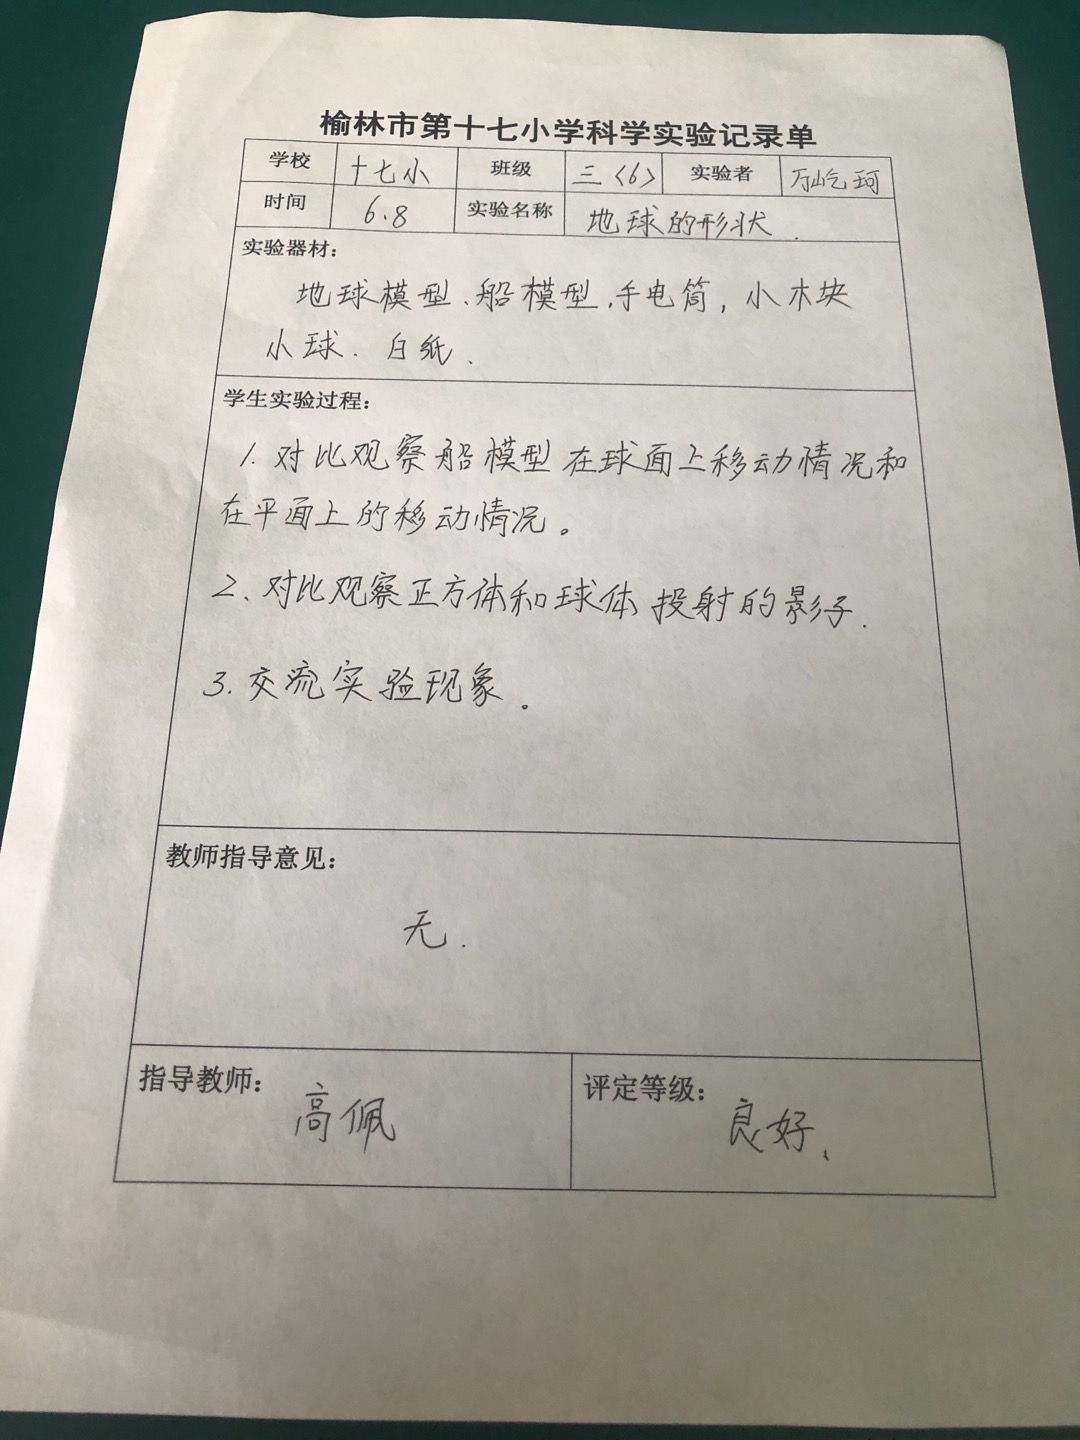 榆林市第十七小学科学实验记录单
学校 十七小 班级 三〈6〉 实验者 万屹珂
时间 6.8 实验名称 地球的形状.
实验器材：
地球模型、船模型,手电筒,小木块
小球.白纸.
学生实验过程：
1.对比观察船模型在球面上移动情况和
在平面上的移动情况。
2、对比观察正方体和球体投射的影子.
3.交流实验现象。
教师指导意见：
无.
指导教师： 高佩 评定等级： 良好、